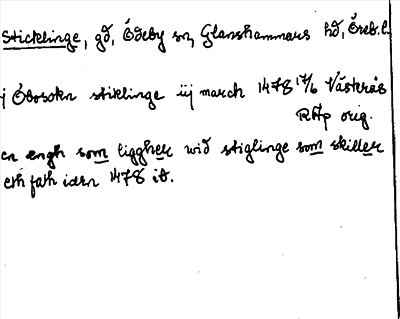 Sticklinge, gd, Ödeby sn, Glanshammars hd, Öreb. l.
j Öbosokn stiklinge iij march 1478 17/6 Västerås
RAp orig.
en ængh som liggher wid stiglinge som skiller
eth fath idsn 1478 ib.